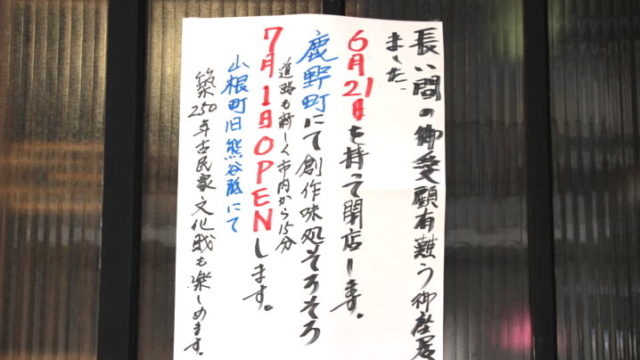 長い間の御愛顧有難う御座居
ました。
6月21日を持って閉店します。
鹿野町にて創作味処そろそろ
道路も新しく市内から15分
7月1日OPENします。
山根町旧熊谷邸にて
築250年古民家文化財も楽しめます。